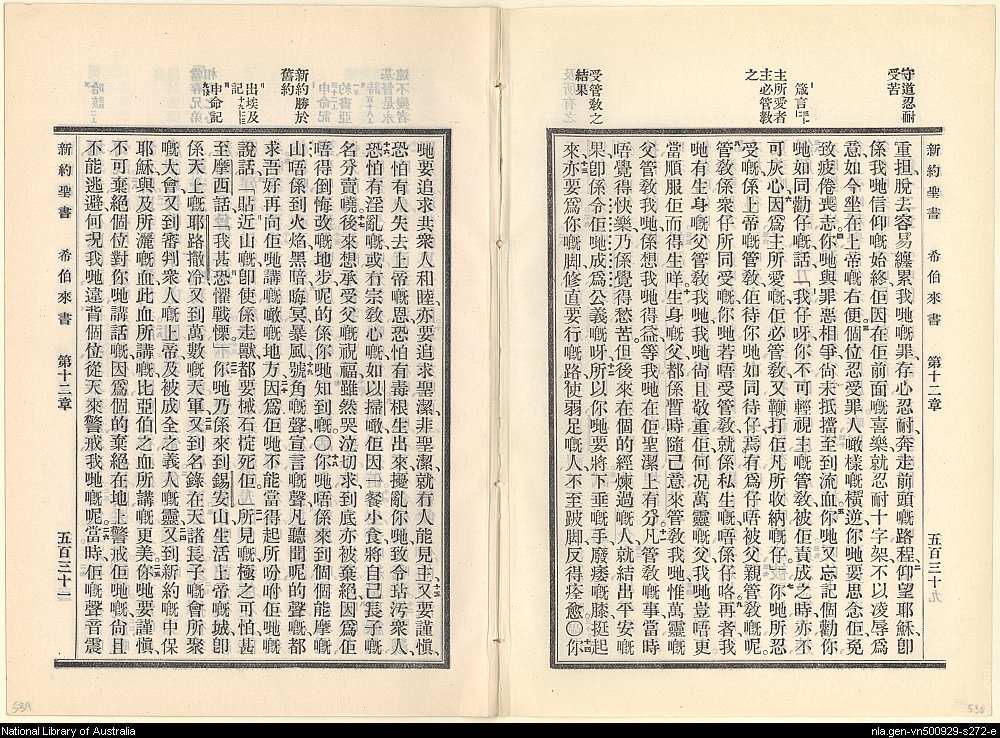 守道忍耐
受苦
箴言
主所愛者
主必管教
之
受管敎之
結果
新約聖書 希伯來書 第十二章 五百三十九
重担、脫去容易纏累我哋嘅罪、存心忍耐、奔走前頭嘅路程、仰望耶穌、卽
係我哋信仰嘅始終、佢因在佢前面嘅喜樂、就忍耐十字架、不以凌辱爲
意、如今坐在上帝嘅右便、個位忍受罪人噉樣嘅橫逆、你哋要思念佢、免
致疲倦喪志、你哋與罪惡相爭、尚未抵擋至到流血、你哋又忘記個勸你
哋如同勸仔嘅話、「我仔呀、你不可輕視主嘅管敎、被佢責成之時、亦不
可灰心、因爲主所愛嘅、佢必管敎、又鞭打佢凡所收納嘅仔、」你哋所忍
受嘅、係上帝嘅管敎、佢待你哋如同待仔、焉有爲仔唔被父親管敎嘅呢、
管敎係衆仔所同受嘅、你哋若唔受管敎、就係私生嘅、唔係仔咯、再者、我
哋有生身嘅父管敎我哋、我哋尚且敬重佢、何况萬靈嘅父、我哋豈唔更
當順服佢而得生咩、生身嘅父都係暫時隨己意來管敎我哋、惟萬靈嘅
父管敎我哋、係想我哋得益、等我哋在佢聖潔上有分、凡管敎嘅事、當時
唔覺得快樂、乃係覺得愁苦、但後來在個的經煉過嘅人、就結出平安嘅
果、卽係令佢哋成爲公義嘅呀、所以你哋要將下垂嘅手、廢痿嘅膝、挺起
來、亦要爲你嘅脚修直要行嘅路、使弱足嘅人不至跛脚、反得痊愈、〇你
新約勝於
舊約
出埃及
記
申命記
哋要追求共衆人和睦、亦要追求聖潔、非聖潔、就冇人能見主、又要謹愼、
恐怕有人失去上帝嘅恩、恐怕有毒根生出來擾亂你哋、致令玷污衆人、
恐怕有淫亂嘅、或有宗敎心嘅、如以掃噉、佢因一餐小食、將自己長子嘅
名分賣嘵、後來想承受父嘅祝福、雖然哭泣切求、到底亦被棄絕、因爲佢
唔得倒悔改嘅地步呢的係你哋知到嘅、〇你哋唔係來到個個能摩嘅
山、唔係到火焰、黑暗、晦冥、暴風、號角嘅聲、宣言嘅聲、凡聽聞呢的聲嘅、都
求吾好再向佢哋講噉嘅地方、因爲佢哋不能當得起所吩咐佢哋嘅
說話、「貼近山嘅、卽使係走獸、都要掟石掟死佢、」所見嘅極之可怕、甚
至摩西話、「我甚恐懼戰慄、」你哋乃係來到錫安山、生活上帝嘅城、卽
係天上嘅耶路撒冷、又到萬數嘅天軍、又到名錄在天諸長子嘅會所聚
嘅大會、又到審判衆人嘅上帝、及被成全之義人嘅靈、又到新約嘅中保
耶穌、與及所灑嘅血、此血所講嘅、比亞伯之血所講嘅更美、你哋要謹愼、
不可棄絕個位對你哋講話嘅、因爲個的棄絕在地上警戒佢哋嘅、尚且
不能逃避、何况我哋違背個位從天來警戒我哋嘅呢、當時佢嘅聲音震
新約聖書 希伯來書 第十二章 五百三十一
National Library of Australia
nla.gen-vn500929-s272-e